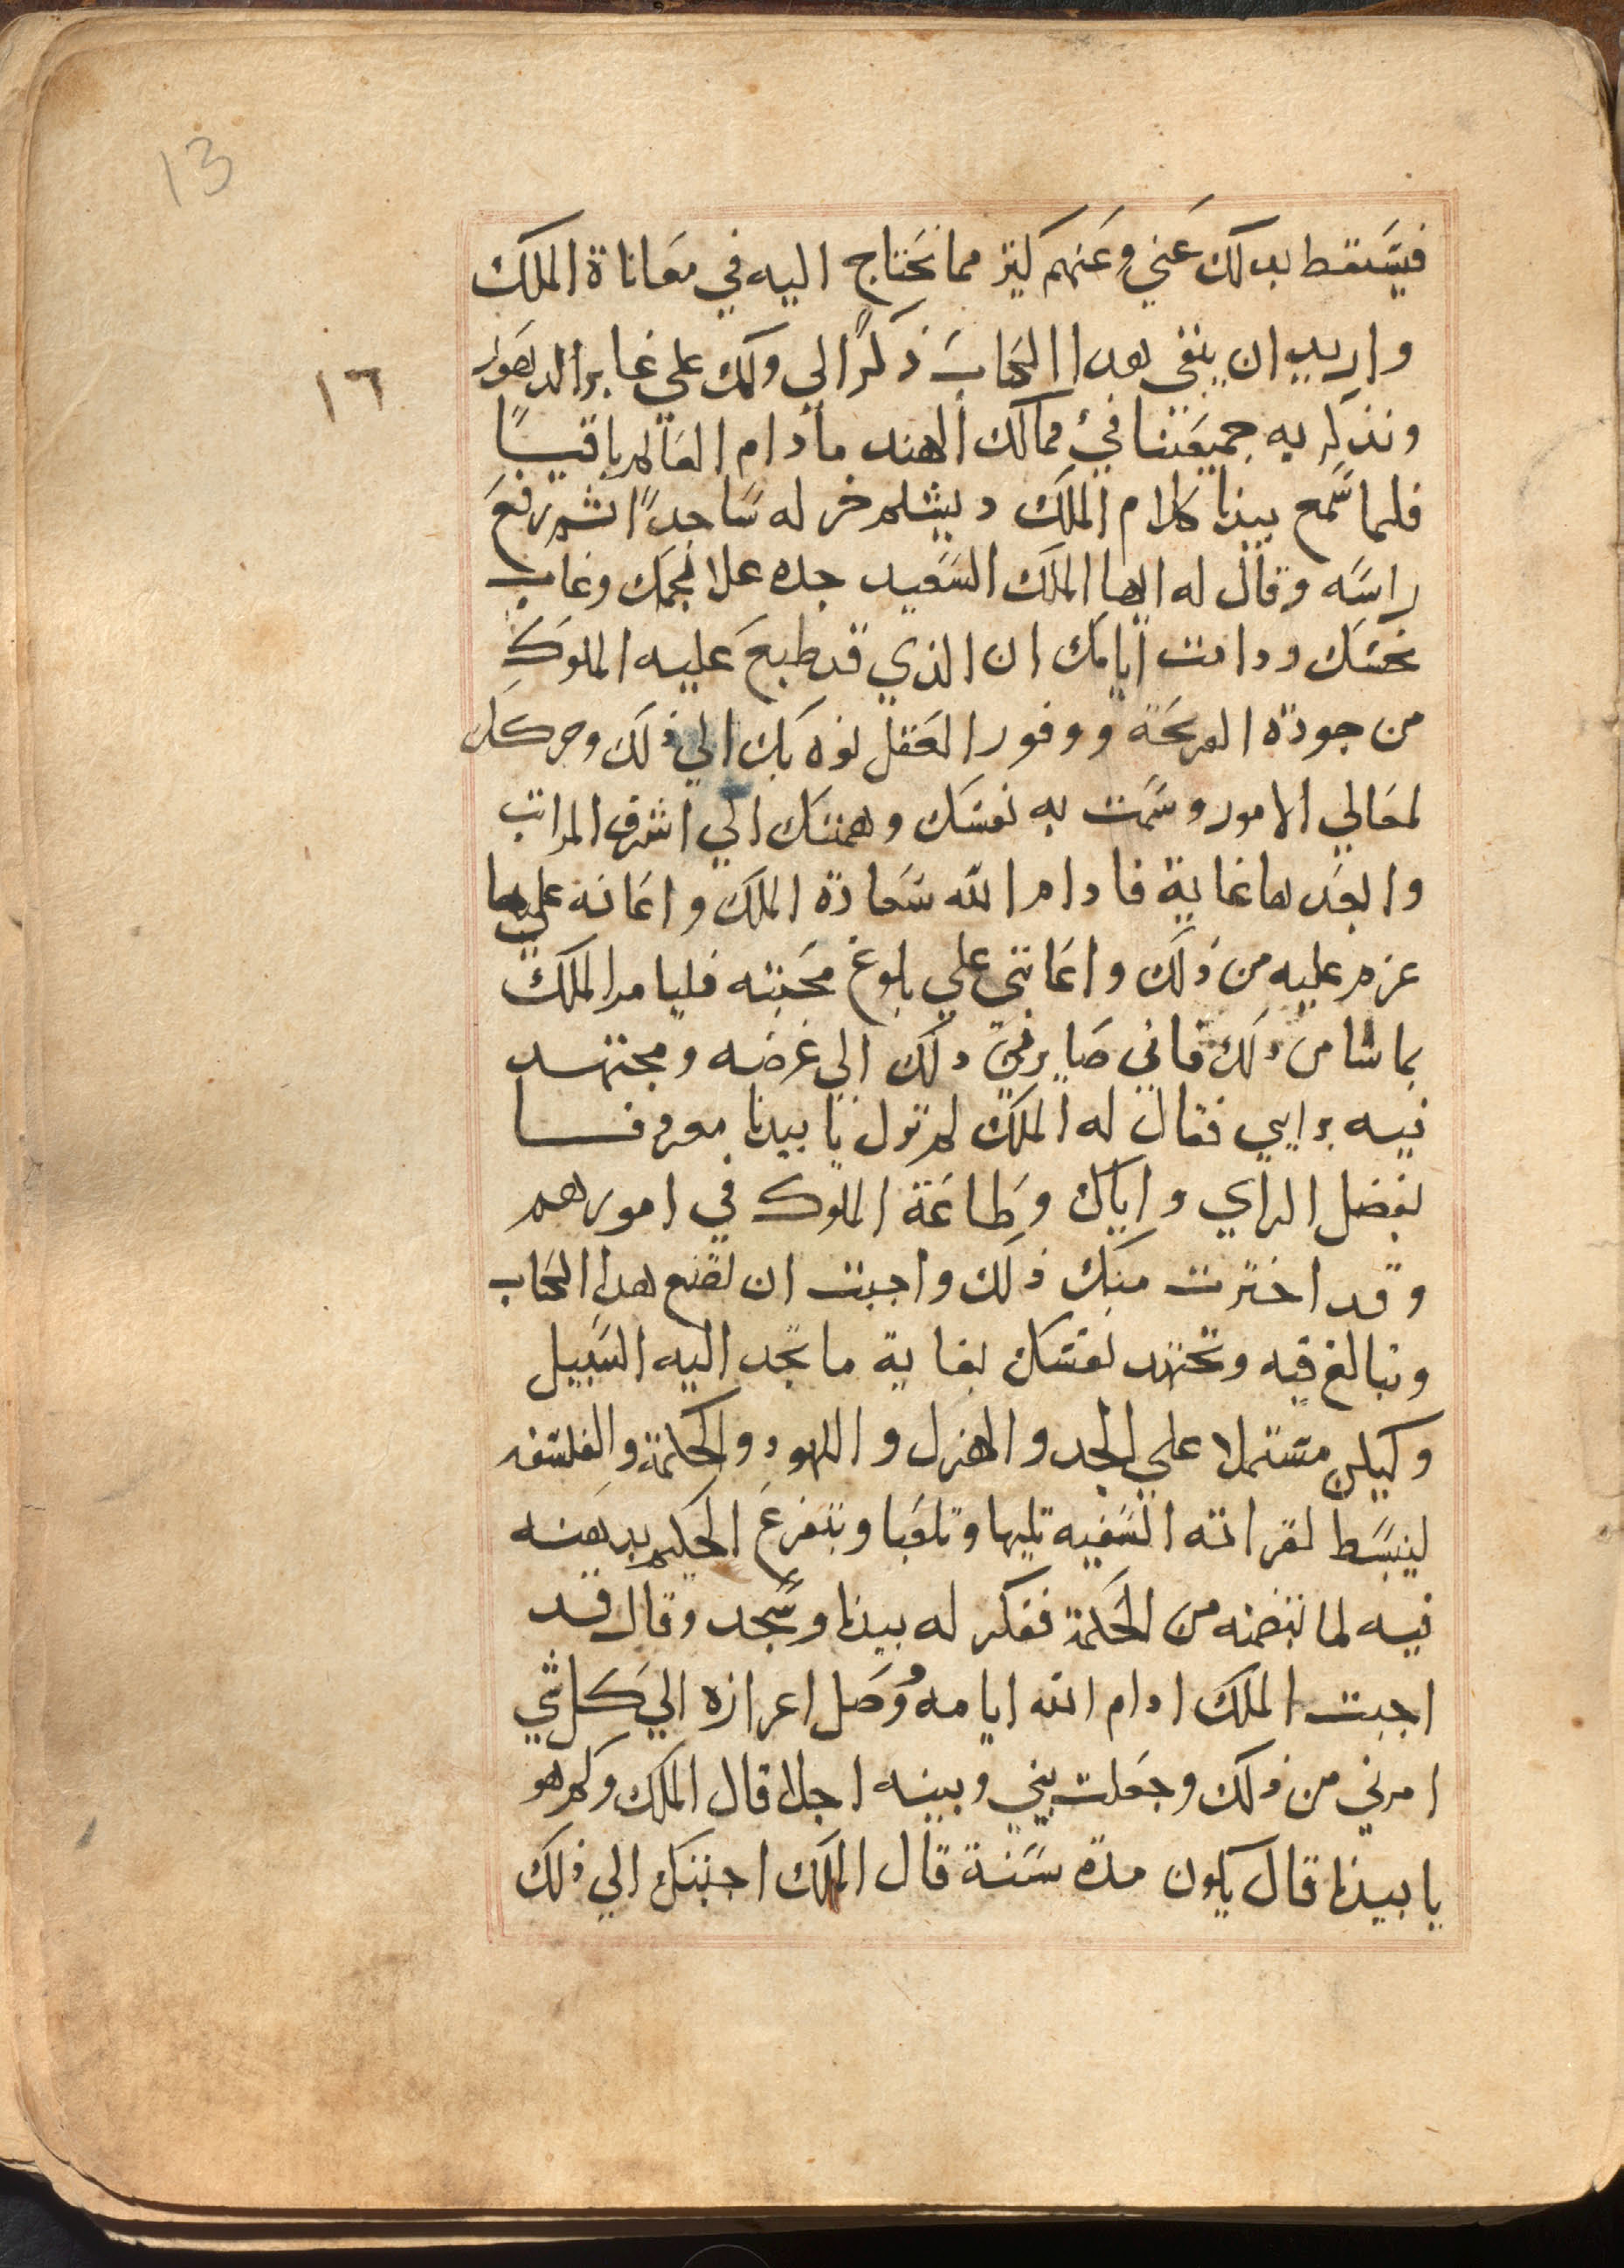 13
١٦
فيسقط بدلك عني وعنهم كثير مما نحتاج اليه في معاناة الملك
واريد ان يبقى هدا الكتاب ذكرًا لي ولك على غابر الدهور
ونذكر به جميعنا في ممالك الهند مادام العالم باقيًا
فلما سمع بيدبا كلام الملك دبشلم خر له ساجدًا ثم رفع
راسه وقال له ايها الملك السعيد جده علا نجمك وغاب
نحسك ودامت ايامك ان الذي قد طبع عليه الملوك
من جودة القريحة ووفور العقل نوه بك الي ذلك وحركك
لمعالي الامور وسمت به نفسك وهمتك الي اشرف المراتب
وابعدها غاية فادام الله سعادة الملك واعانه على ما
عزم عليه من ذلك واعانني علي بلوغ محبته فليامر الملك
بما شا من ذلك فاني صاير في ذلك الي غرضه ومجتهد
فيه برايي فقال له الملك لم تزل يا بيدبا معروفا
بفضل الراي واياك وطاعة الملوك في امورهم
وقد اخترت منك ذلك واحببت ان تصنع هدا الكتاب
وتبالغ فيه وتجتهد نفسك بغاية ما تجد اليه السبيل
وليكن مشتملا علي الجد والهزل واللهو والحكمة والفلسفه
لينبسط لقراته السفيه تليها وتلعبا ويتفرغ الحكيم بدهنه
فيه لما تضمنه من الحكمة ففكر له بيدبا وسجد وقال قد
اجبت الملك ادام الله ايامه ووصل اعزازه الي كل شي
امرني من ذلك وجعلت بيني وبينه اجلا قال الملك وكم هو
يا بيدبا قال يكون مدة سنة قال الملك اجبتك الي ذلك